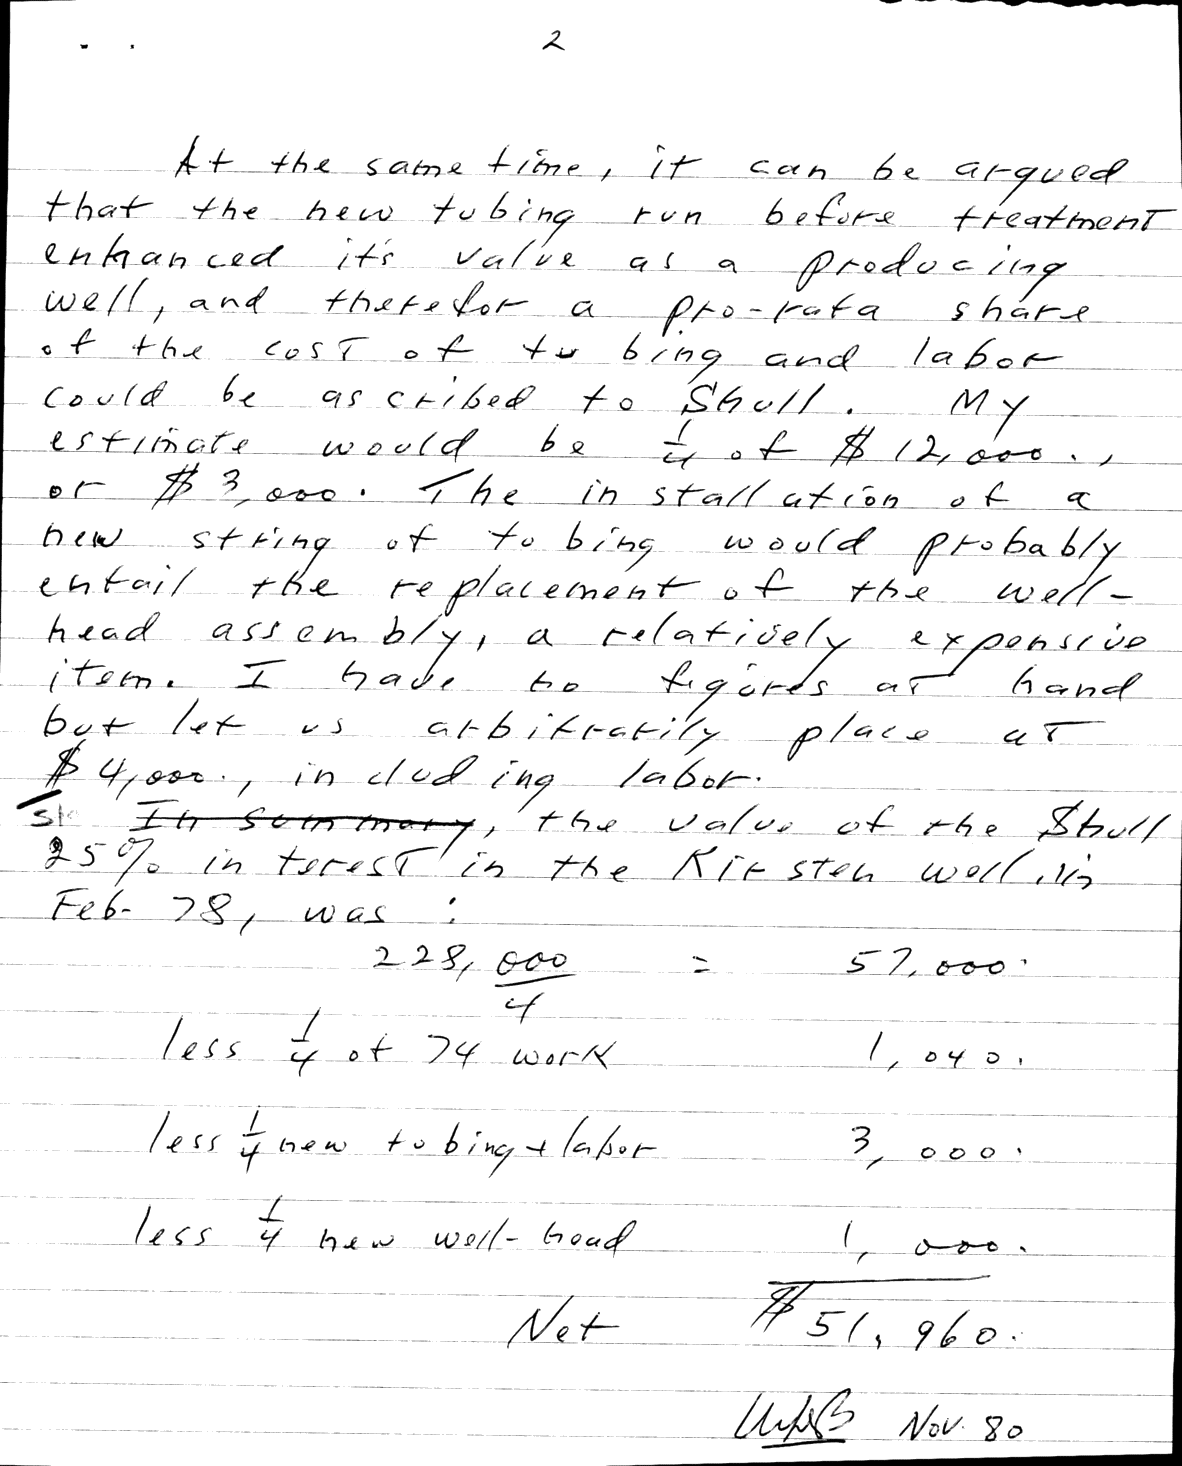 2
At the same time, it can be argued
that the new tubing run before treatment
enhanced it's value as a producing
well, and therefor a pro-rata share
of the cost of tubing and labor
could be ascribed to Shull. My
estimate would be 1/4 of $12,000.,
or $3,000. The installation of a
new string of tubing would probably
entail the replacement of the well-
head assembly, a relatively expensive
item. I have no figures at hand
but let us arbitrarily place at
$4,000., including labor.
In summary, the value of the Shull
25% interest in the Kirsten well, in
Feb. 78, was :
228,000/4 = 57,000.
less 1/4 of 74 work 1,040.
less 1/4 new tubing + labor 3,000.
less 1/4 new well-head 1,000.
Net $51,960.
Nov. 80